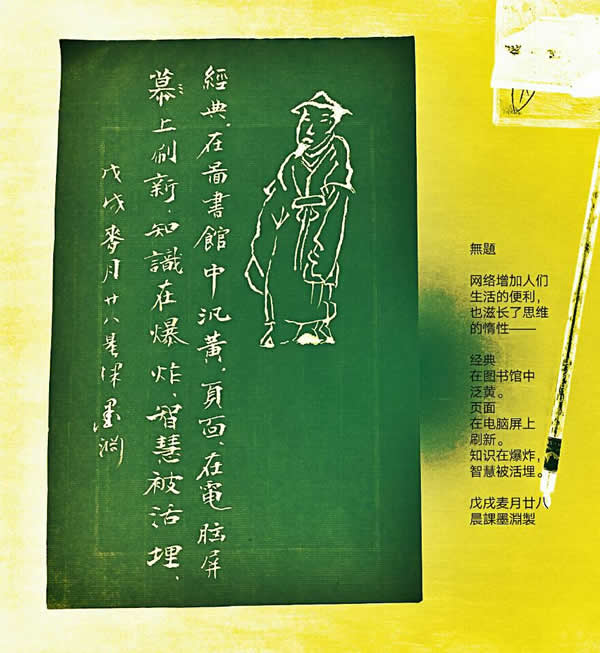 經典.在啚書館中汎黃.頁面.在電脑屏
幕上刷新.知識在爆炸.智慧被活埋.
戊戌麥月廿八晨课墨渊
無題
网络增加人们
生活的便利，
也滋长了思维
的惰性——
经典
在图书馆中
泛黄。
页面
在电脑屏上
刷新。
知识在爆炸，
智慧被活埋。
戊戌麦月廿八
晨課墨淵製